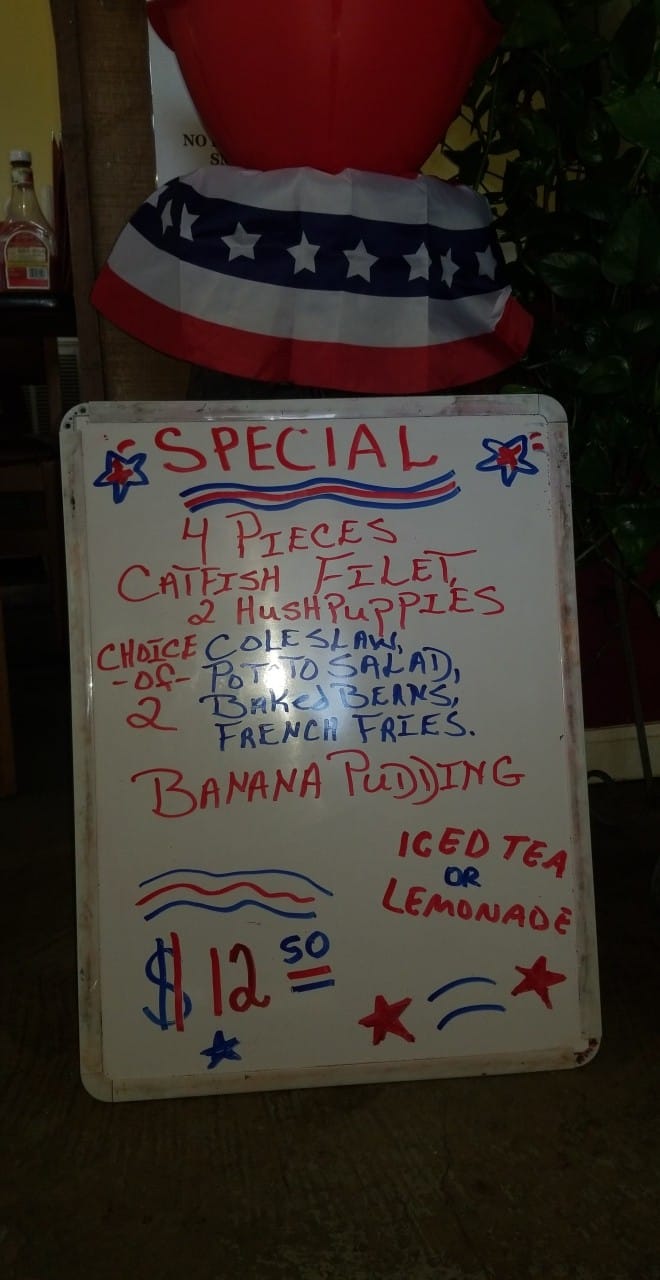 NO
SPECIAL
4 PIECES
CATFISH FILET,
2 HUSHPUPPIES
CHOICE COLESLAW,
-OF- POT TO SALAD,
2 BAKED BEANS,
FRENCH FRIES.
BANANA PUDDING
ICED TEA
OR
LEMONADE
$12 50